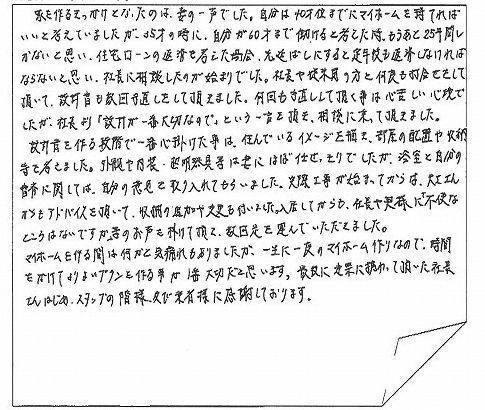 家を作るきっかけとなったのは、妻の一声でした。自分は40才位までにマイホームを持てれば
いいと考えていましたが、35才の時に、自分が60才まで働けると考えた時、もうあと25年間し
かないと思い、住宅ローンの返済を考えた場合、先延ばしにすると定年後も返済しなければ
ならないと思い、社長に相談したのが始まりでした。社長や設計員の方と何度も打合せをして
頂いて、設計図も数回手直しをして頂きました。何回も手直しして頂く事は心苦しい心境で
したが、社長より「設計が一番大切なので」という一言を頂き、相談に乗って頂きました。
設計図を作る段階で一番心掛けた事は、住んでいるイメージを描き、部屋の配置や収納
等を考えました。外観や内装・照明器具等は妻にほぼ任せっきりでしたが、浴室と自分の
書斎に関しては、自分の意見を取り入れてもらいました。実際工事が始まってからは、大工さん
からもアドバイスを頂いて、収納の追加や変更も行いました。入居してからも、社長や奥様に「不便な
ところはないですか」等のお声を掛けて頂き、数回足を運んでいただきました。
マイホームを作る間は何かと気疲れもありましたが、一生に一度のマイホーム作りなので、時間
をかけてよりよいプランを作る事が1番大切だと思います。最後に建築に携わって頂いた社長
さんはじめ、スタッフの皆様、及び業者様に感謝しております。